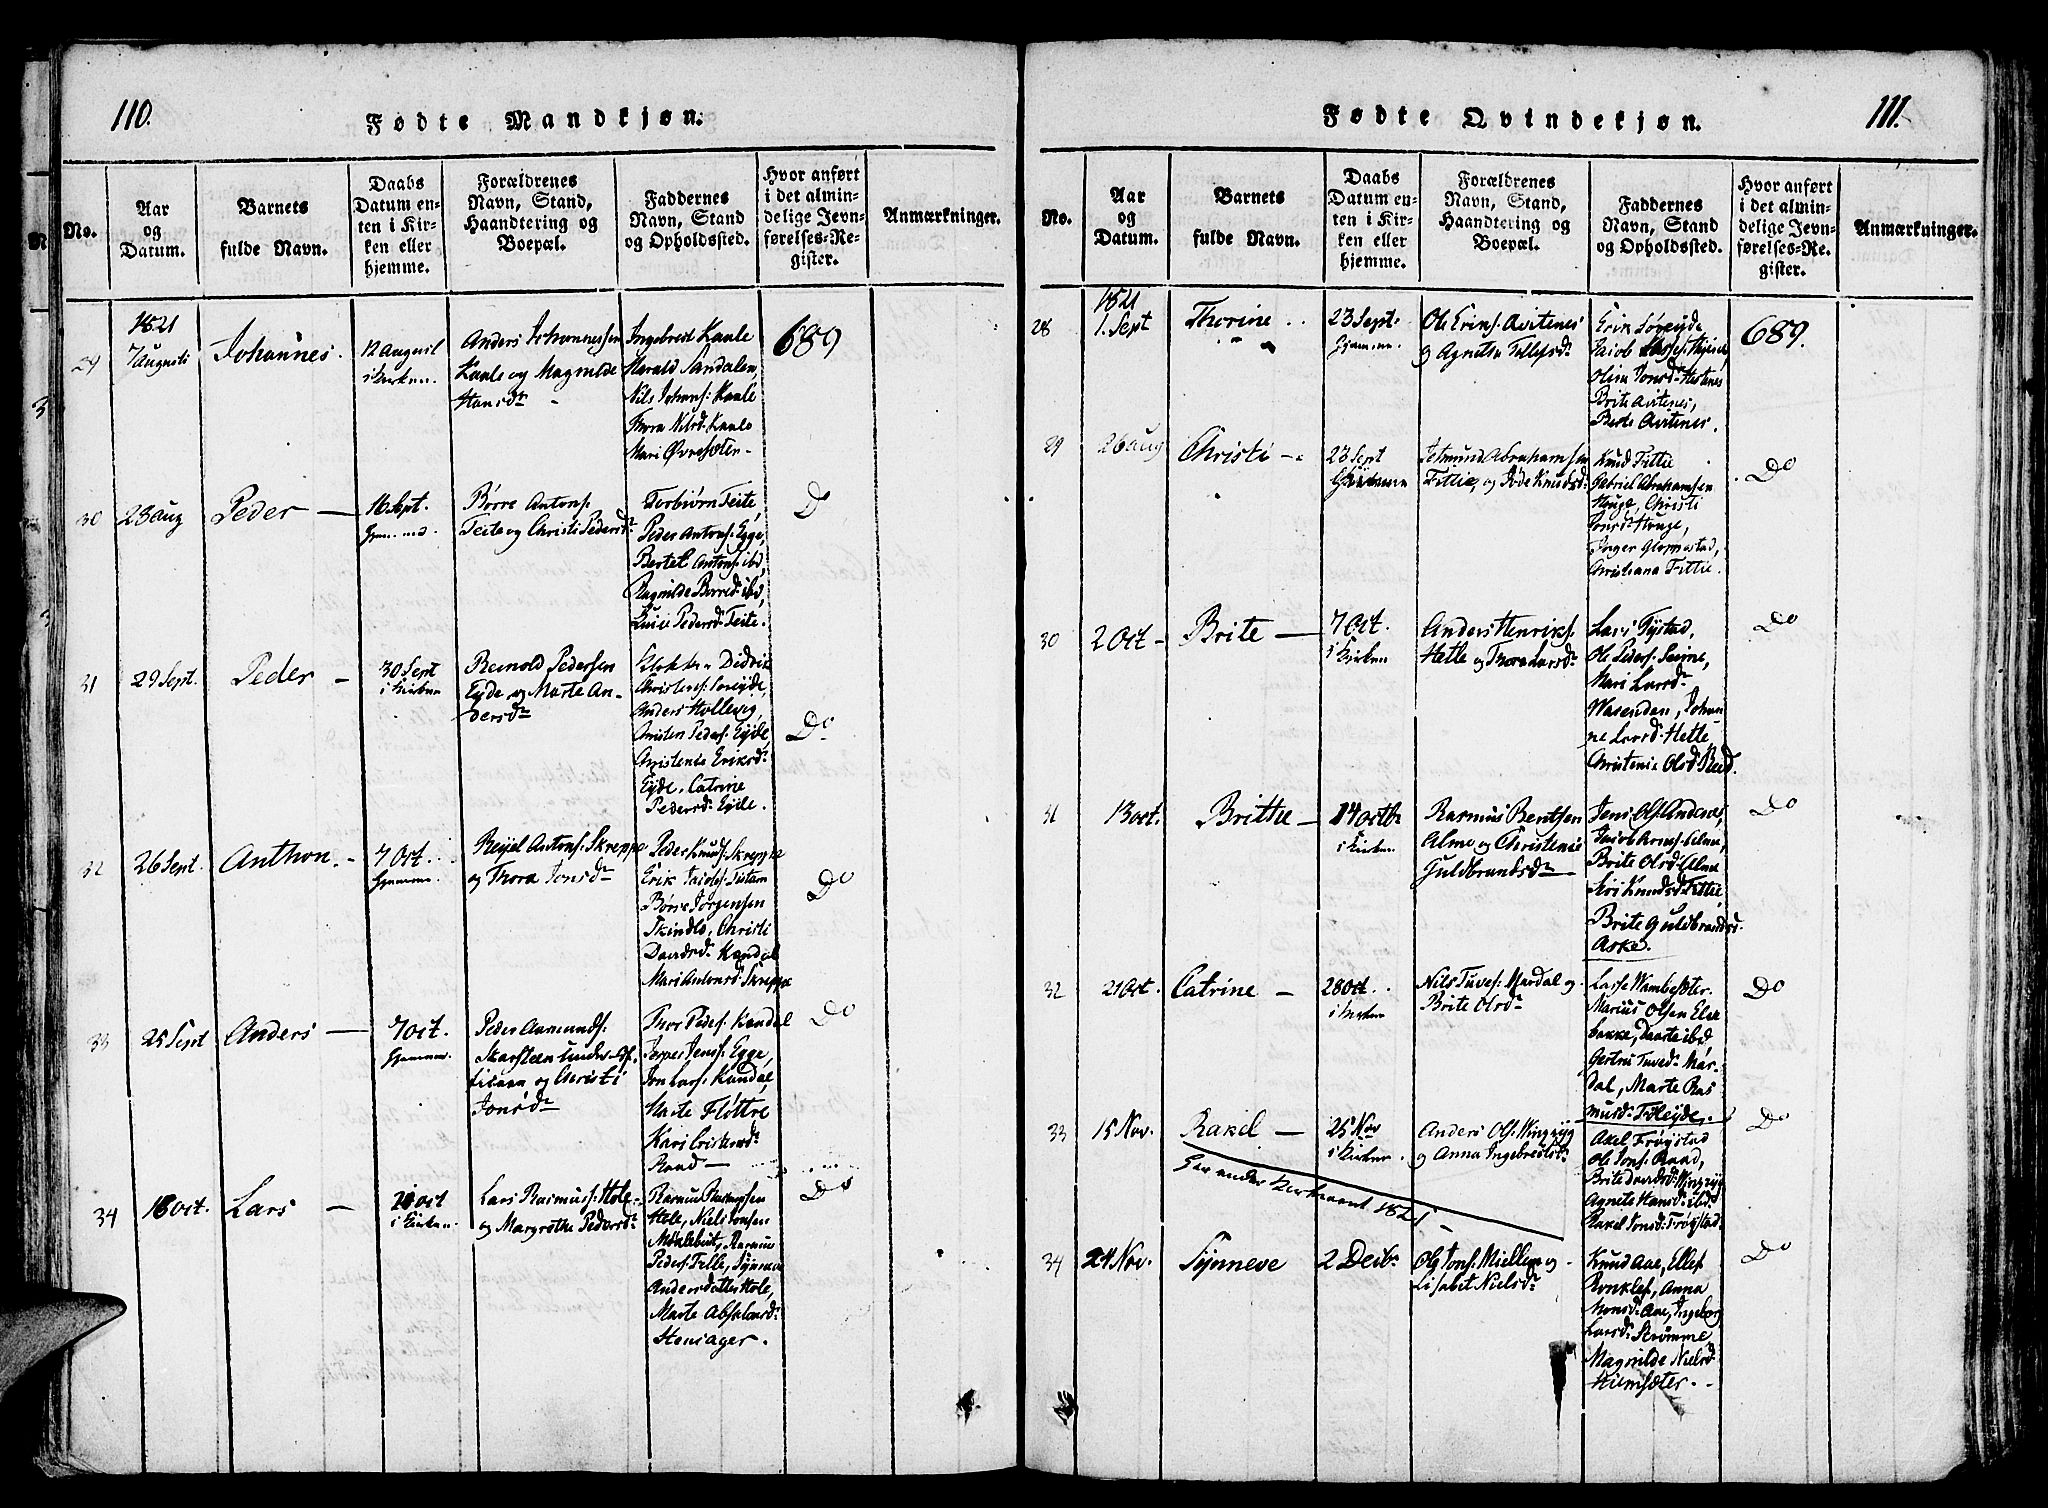 110.
Fødte Mandkjøn.
No.
Aar
og
Datum.
Barnets
fulde Navn.
Daabs
Datum en-
ten i Kir-
ken eller
hjemme.
Forældrenes
Navn, Stand,
Haandtering og
Boepæl.
Faddernes
Navn, Stand
og Opholdssted.
Hvor anført
i det almin-
delige Jevn-
førelses-Re-
gister.
Anmærkninger.
1821
29
7 Augusti
Johannes.
12 August
i Kirken.
Anders Johannessen
Kaale og Magnilde
Hansdr
Ingebred Kaale
Harald Sandalen
Nils Johans: Kaale
Thora Nilsd: Kaale
Mari Øvresæter
689
30
23 aug
Peder
16 Sept.
Børre Antons:
Teite og Christi Pedersdr
Torbiørn Teite,
Peder Antons: Egge,
Bertel Antons: ibd,
Ragnilde Børred: ibd,
Pedersd: Teite.
D
31
29 Sept.
Peder
30 Sept
i Kirken
Reinold Pedersen
Eyde og Marte An-
dersdr
Didrik
Christens: Søreyde,
Anders Hollevig,
Christen Peders: Eyde
Christenie Eriksd:
Eyde. Catrine
Pedersd: Eyde.
Do
32
26 Sept.
Anthon
7 Oct.
Hjemme.
Reyel Antons: Skreppe
og Thora Jonsdr
Peder Knuds: Skreppe
Erik Jacobs: Tistam
Børre Jørgensen
Skindlo, Christi
Davidsd: Kandal
Mari Antonsd: Skreppe
Do
33
25 Sept
Anders
7 Oct.
Hjemme.
Peder Aamunds:
Skarsteen under
og Christi
Jonsdr
Thor Peders: Kandal
Jesper Jens: Egge,
Jon Lars: Kandal,
Marte Fløttre
Kari
Raad
Do
34
18 oct.
Lars
21 oct
i Kirken.
Lars Rasmuss: Hole
og Margrethe Pedersdr
Rasmus Rasmussen
Hole, Niels Jonsen
Myklebust, Rasmus
Peders: Felle, Synneve
Andersdatter Hole,
Marte Absalonsd:
Henjager.
Do
111.
Fødte Qvindekjøn.
No.
Aar
og
Datum.
Barnets
fulde Navn.
Daabs
Datum en-
ten i Kir-
ken eller
hjemme.
Forældrenes
Navn, Stand,
Haandtering og
Boepæl.
Faddernes
Navn, Stand
og Opholdssted.
Hvor anført
i det almin-
delige Jevn-
førelses-Re-
gister.
Anmærkninger.
1821
28
1. Sept
Thorine
23 Sept.
Hjemme.
Ole Erins: Avitenes
og Agnetha Tollefsdr
Erik Søreyde,
Jacob
Oline Jonsd: Hestenes
Brite Avitenes,
Berte Avitenes.
689.
29
26 aug
Christi
23 Sept
Hjemme
Jetmund Abrahamsen
Fittie, og Jøde Knudsd:
Knud Fittie
Gabriel Abrahamsen
Houge, Christi
Jonsd: Houge,
Inger Glomestad,
Christiana Fittie.
Do
30
2 Oct
Brite
7 Oct.
i Kirken
Anders Henriks:
Hetle og Thora Larsdr
Lars Tystad,
Ole Peders: Seime,
Mari Larsdr
Wasenden, Johan
ne Larsd: Hetle
Christenie Olsd Reed.
Do
31
13 oct.
Brittie
14 octbr
i Kirken
Rasmus Bentsen
Alme og Christenie
Guldbrandsdr
Jens Ols: Andenes,
Jacob Arns: Alme,
Brite Olsd: Alme
Siri Knudsd Fittie
Brite Guldbrandsd.
Aske.
Do
32
21 Oct.
Catrine
28 Oct.
i Kirken
Nils Tuves: Mardal og
Brite Olsdr
Lasse Wambesæter.
Marius Olsen Else
bakke, Daarte ibd
Gertru Tuved: Mar-
dal, Marte Ras
musd: Føleyde.
Do
33
15 Nov.
Rakel
25 Nov
i Kirken.
Anders Ols: Wingryg
og Anna Ingebretsdr
Axel Frøystad
Ole Jons: Raad,
Brite Davidsd: Wingryg
Agnete Hansd: ibd.
Rakel Jonsd: Frøystad
Do
Her ender Kirkeaaret 1821
34
24 Nov.
Synneve
2 Decbr
Ole Jons: Miellem og
Lisabet Nielsdr
Knud Aae, Ellef
Ronklef, Anna
Monsd: Aae, Ingeborg
Larsd: Strømme,
Magnilde Nielsd
Hiemsæter.
Do